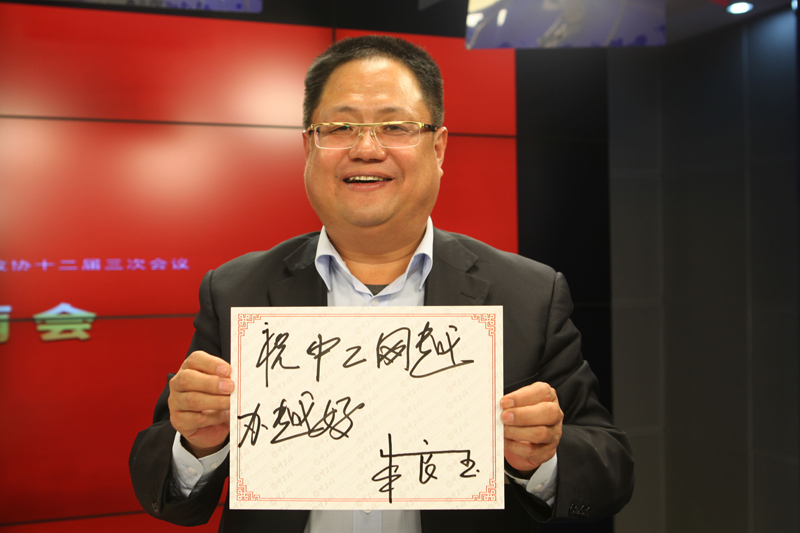 协十二届三次会议
会
祝中工网越
办越好
朱良玉